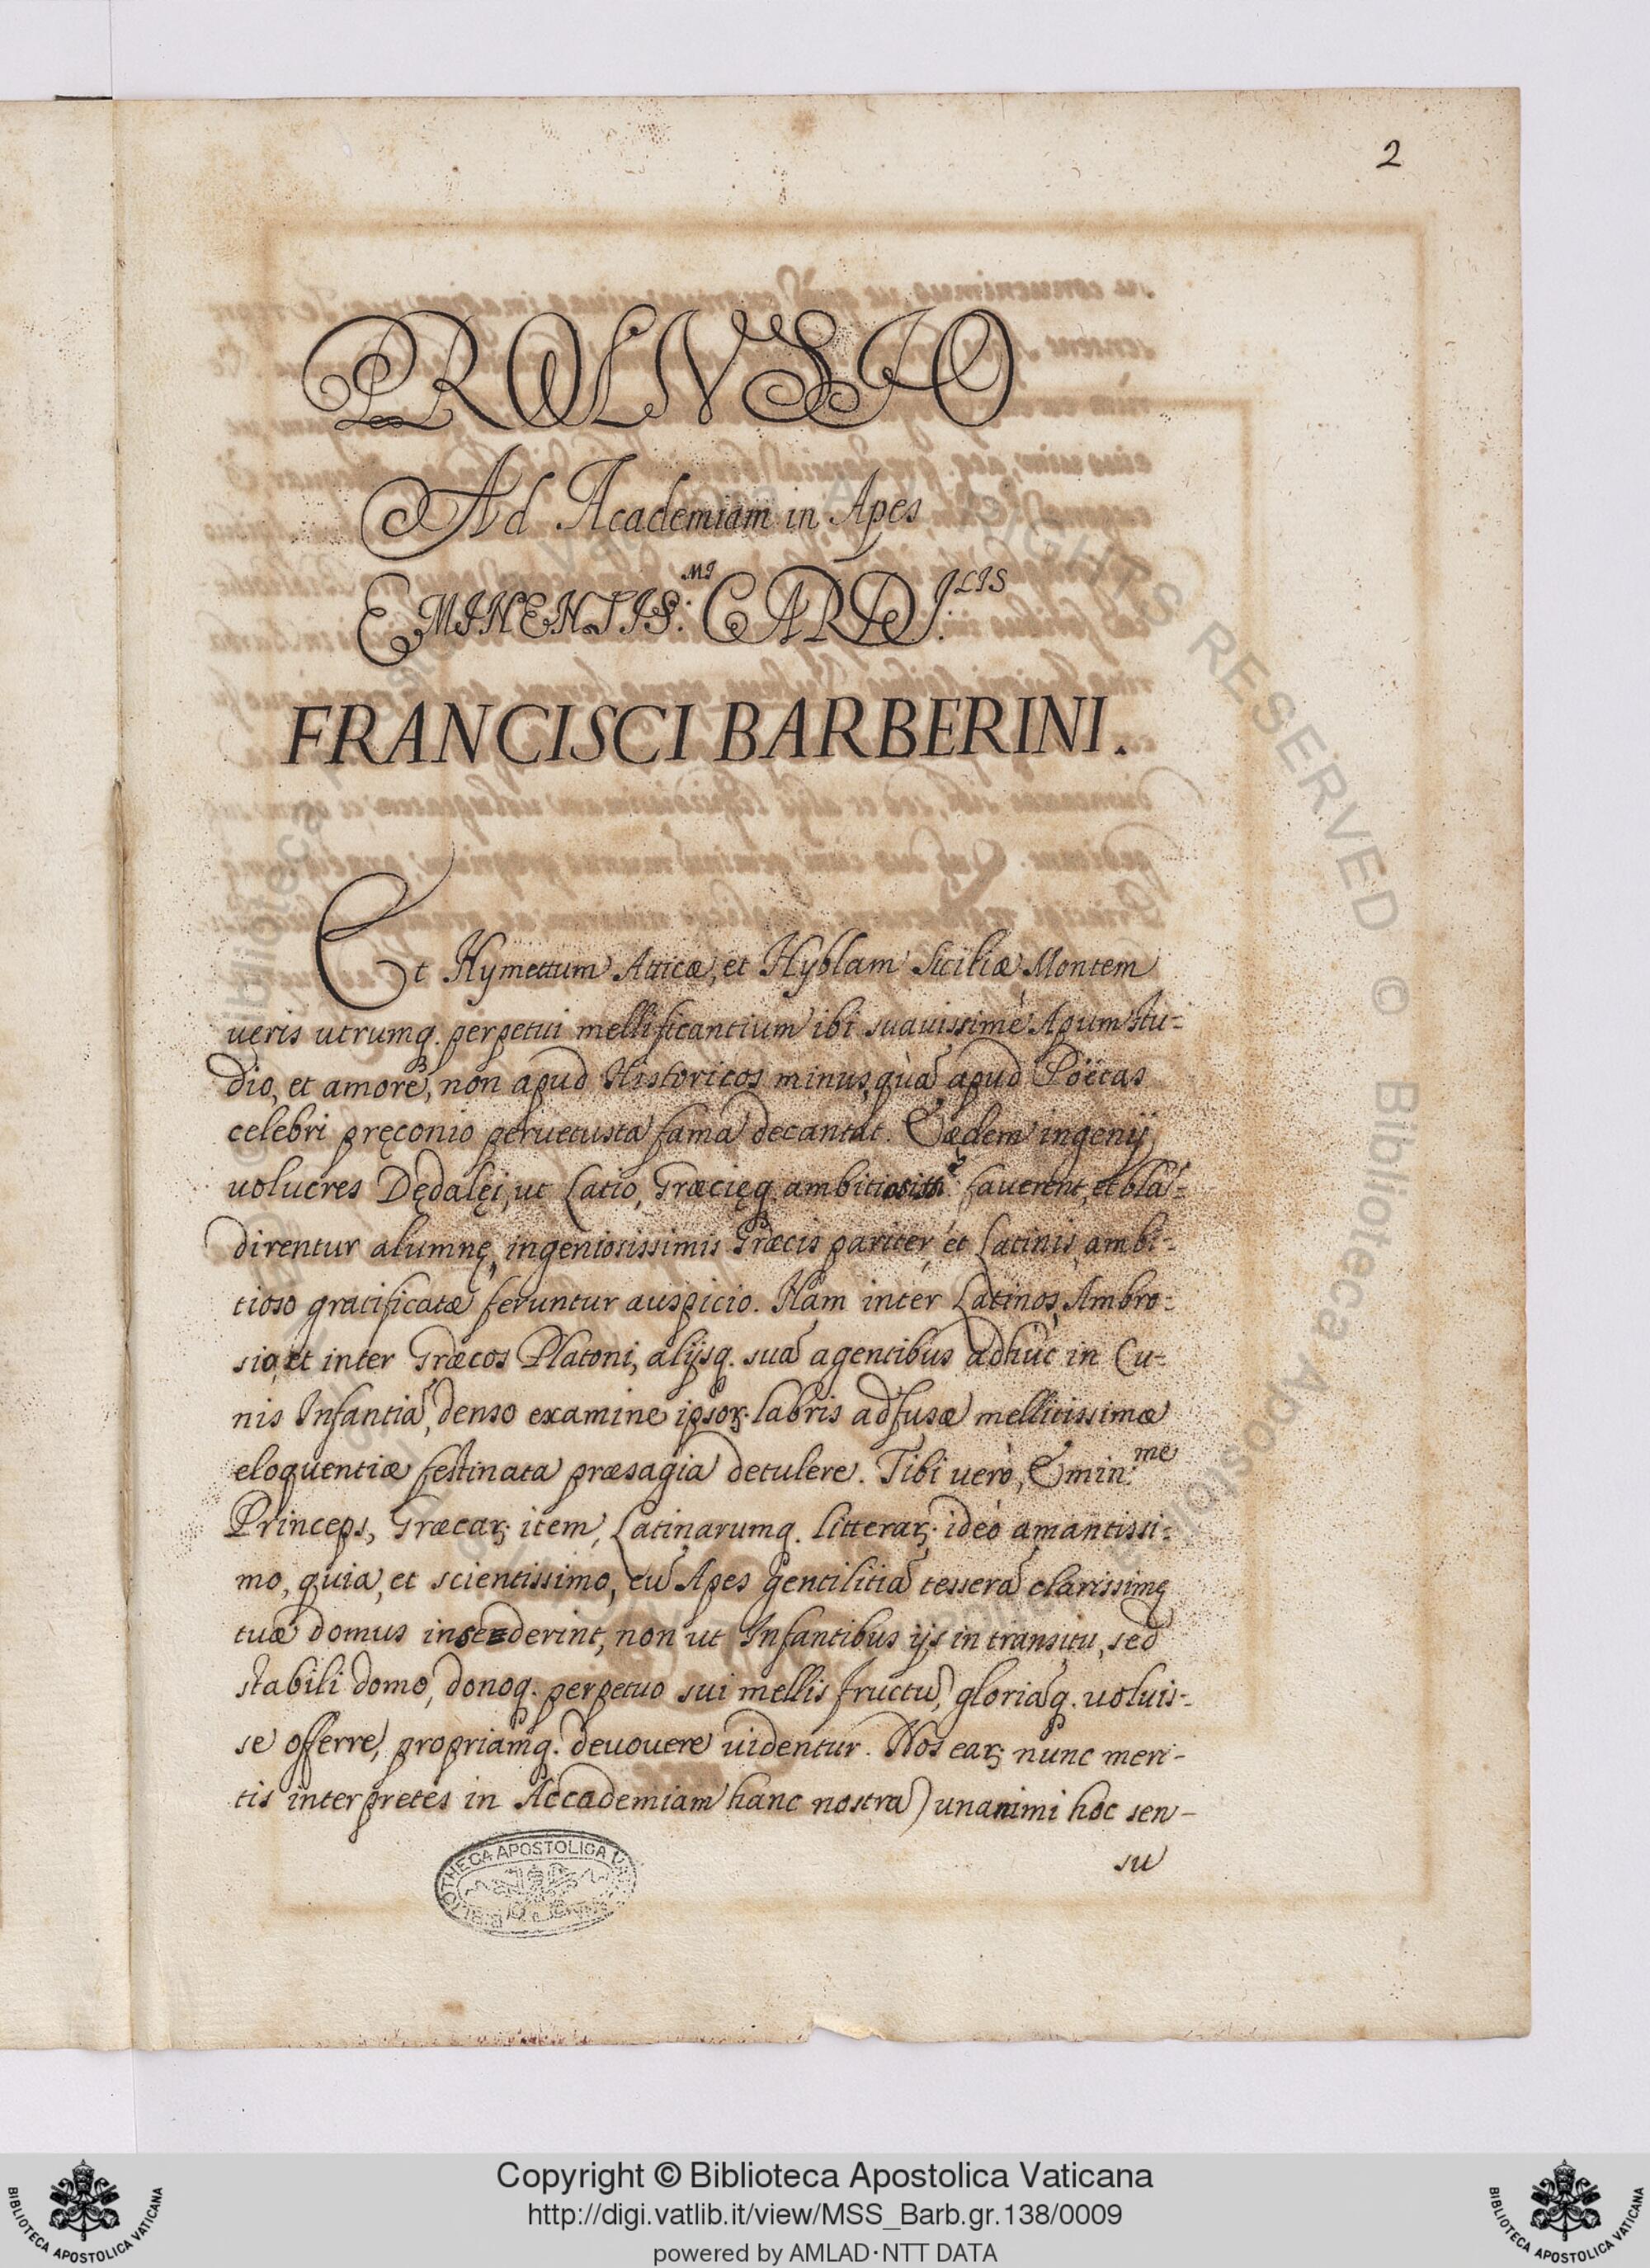 2
PROLVSIO
Ad Academiam in Apes
EMINENTIS:MI CARD.LIS
FRANCISCI BARBERINI.
Et Hymettum Atticæ, et Hyblam Siciliæ Montem
ueris utrumq. perpetui mellificantium ibi suauissimè Apum stu-
dio, et amore, non apud Historicos minus, quà apud Poëtas
celebri pręconio peruetusta fama decantat. Eædem ingenij
uolucres Dędalęi, ut Latio, Græcięq. fauerent, et blã-
direntur alumnę, ingeniosissimis Græcis pariter, et Latinis ambi-
tioso gratificatæ feruntur auspicio. Nam inter Latinos Ambro-
sio, et inter Græcos Platoni, alijsq. suã agentibus adhuc in Cu-
nis Infantiã, denso examine ipsoꝝ labris adfusæ mellitissimæ
eloquentiæ festinata præsagia detulere. Tibi uerò, Emin:me
Princeps, Græcaꝝ item, Latinarumq. litteraꝝ ideò amantissi-
mo, quia, et scientissimo, cũ Apes gentilitiã tesserã clarissimę
tuæ domus insederint, non ut Infantibus ijs in transitu, sed
stabili domo, donoq. perpetuo sui mellis fructũ, gloriãq. uoluis-
se offerre, propriamq. deuouere uidentur. Nos eaꝝ nunc meri-
tis interpretes in Accademiam hanc nostrã unanimi hoc sen-
su
BIBLIOTHECA APOSTOLICA
Copyright © Biblioteca Apostolica Vaticana
http://digi.vatlib.it/view/MSS_Barb.gr.138/0009
powered by AMLAD·NTT DATA
BIBLIOTECA APOSTOLICA VATICANA
BIBLIOTECA APOSTOLICA VATICANA